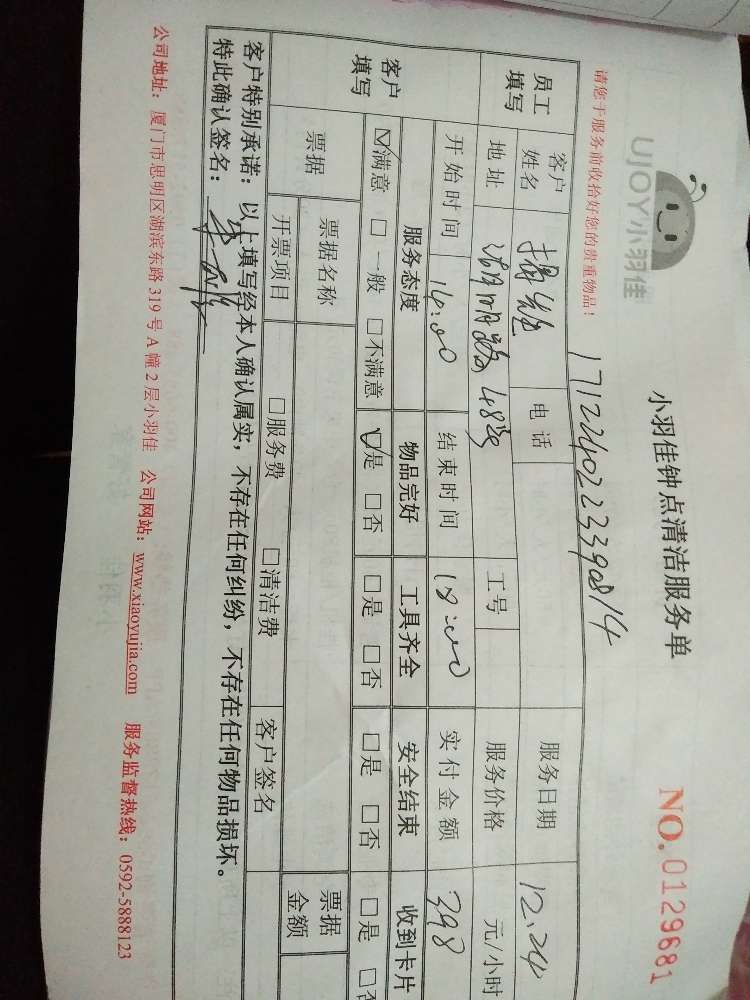 UJOY小羽佳
小羽佳钟点清洁服务单
NO.0129681
请您于服务前收拾好您的贵重物品!
1712240223390814
员工填写 客户姓名 电话 服务日期 12.24
地址 湖明路48号 工号 服务价格 元/小时
开始时间 14:00 结束时间 18:00 实付金额 398
客户填写 服务态度 物品完好 工具齐全 安全结束 收到卡片
☑满意 □一般 □不满意 ☑是 □否 □是 □否 □是 □否 □是 □否
票据 票据名称 票据金额
开票项目 □服务费 □清洁费 客户签名
客户特别承诺:以上填写经本人确认属实,不存在任何纠纷,不存在任何物品损坏。
特此确认签名:
公司地址:厦门市思明区湖滨东路319号A幢2层小羽佳 公司网站:www.xiaoyujia.com 服务监督热线:0592-5888123